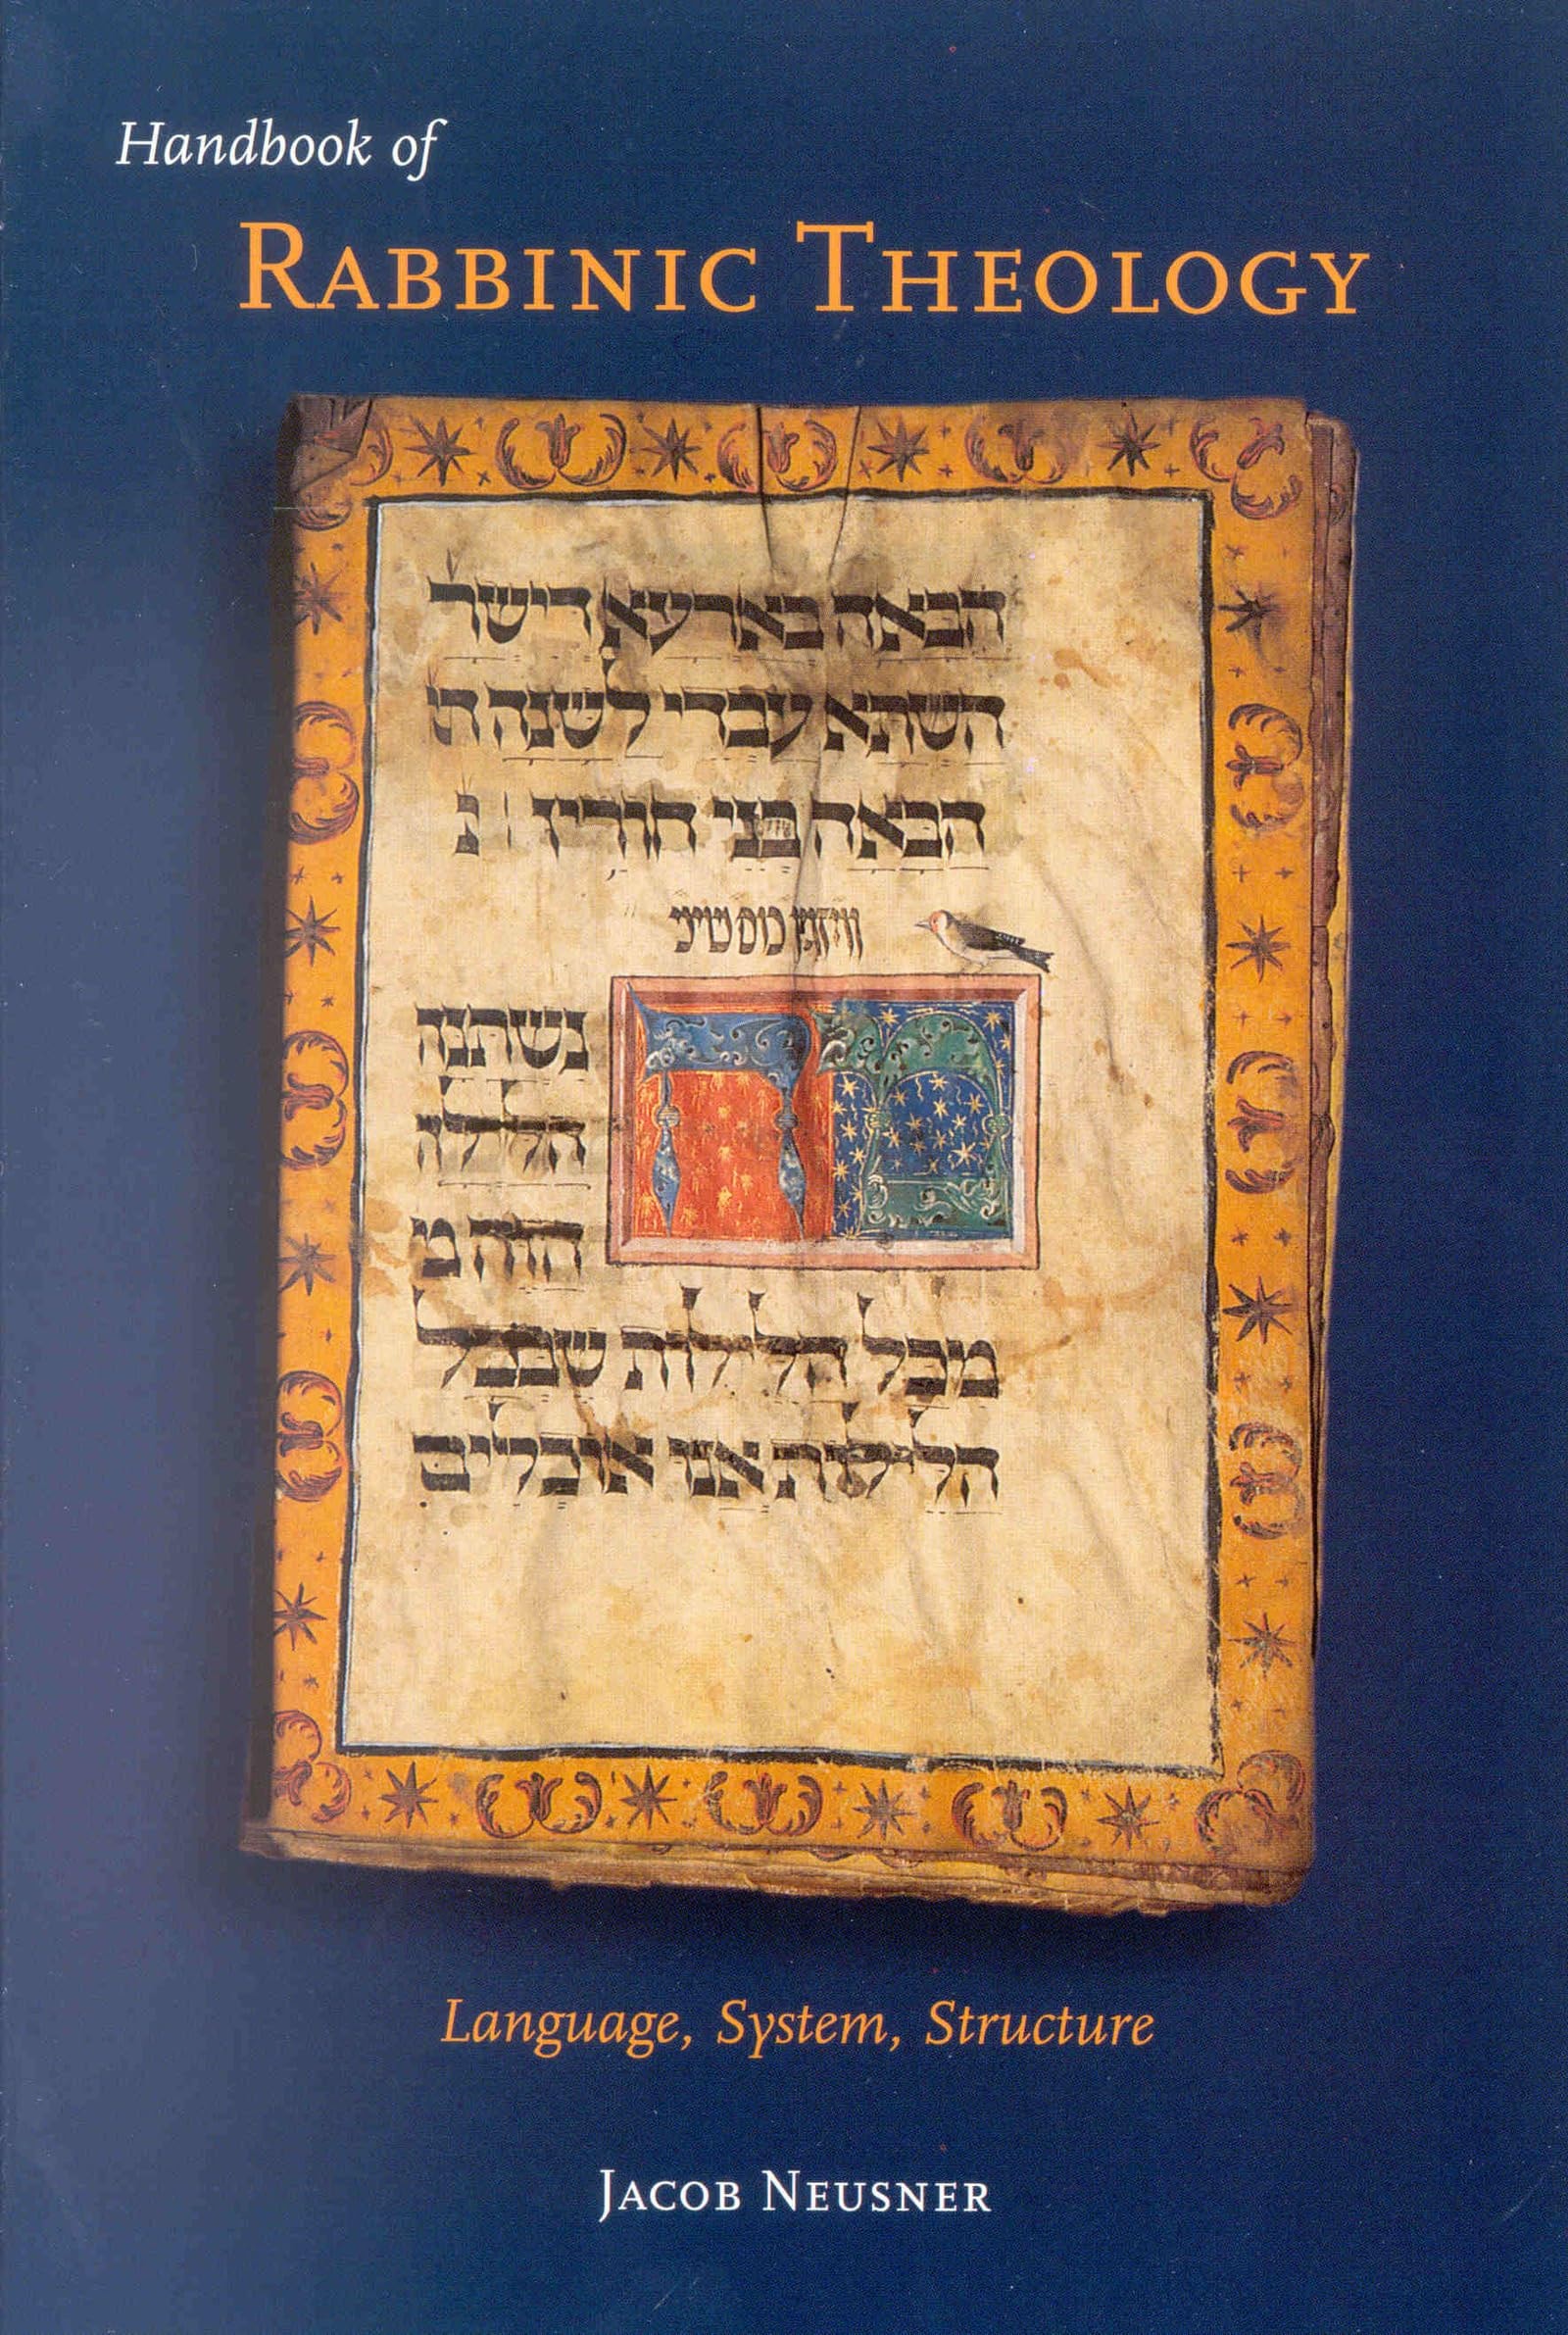 Handbook of
RABBINIC THEOLOGY
הבאה בארעא דישר
השתא עבדי לשנה
הבאה בני חורין
כוס שיני
מה נשתנה
הלילה
הזה מ
מכל הלילות שבכל
הלילות אנו אוכלים
Language, System, Structure
JACOB NEUSNER